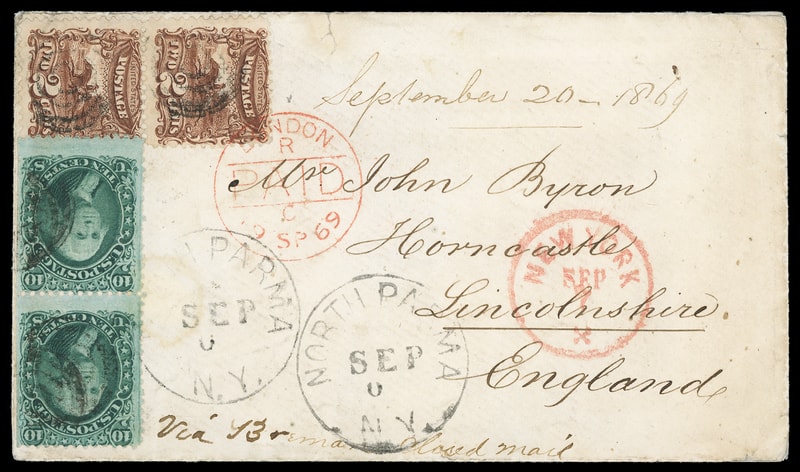 2 2
POSTAGE POSTAGE
TWO CENTS TWO CENTS
September 20 - 1869
LONDON
R
PAID
C
SP 69
Mr John Byron
Horncastle
Lincolnshire
England
NEW YORK
SEP
TEN CENTS
U.S. POSTAGE
10 10
TEN CENTS
U.S. POSTAGE
10 10
NORTH PARMA
SEP
N.Y.
NORTH PARMA
SEP
N.Y.
Via Closed mail